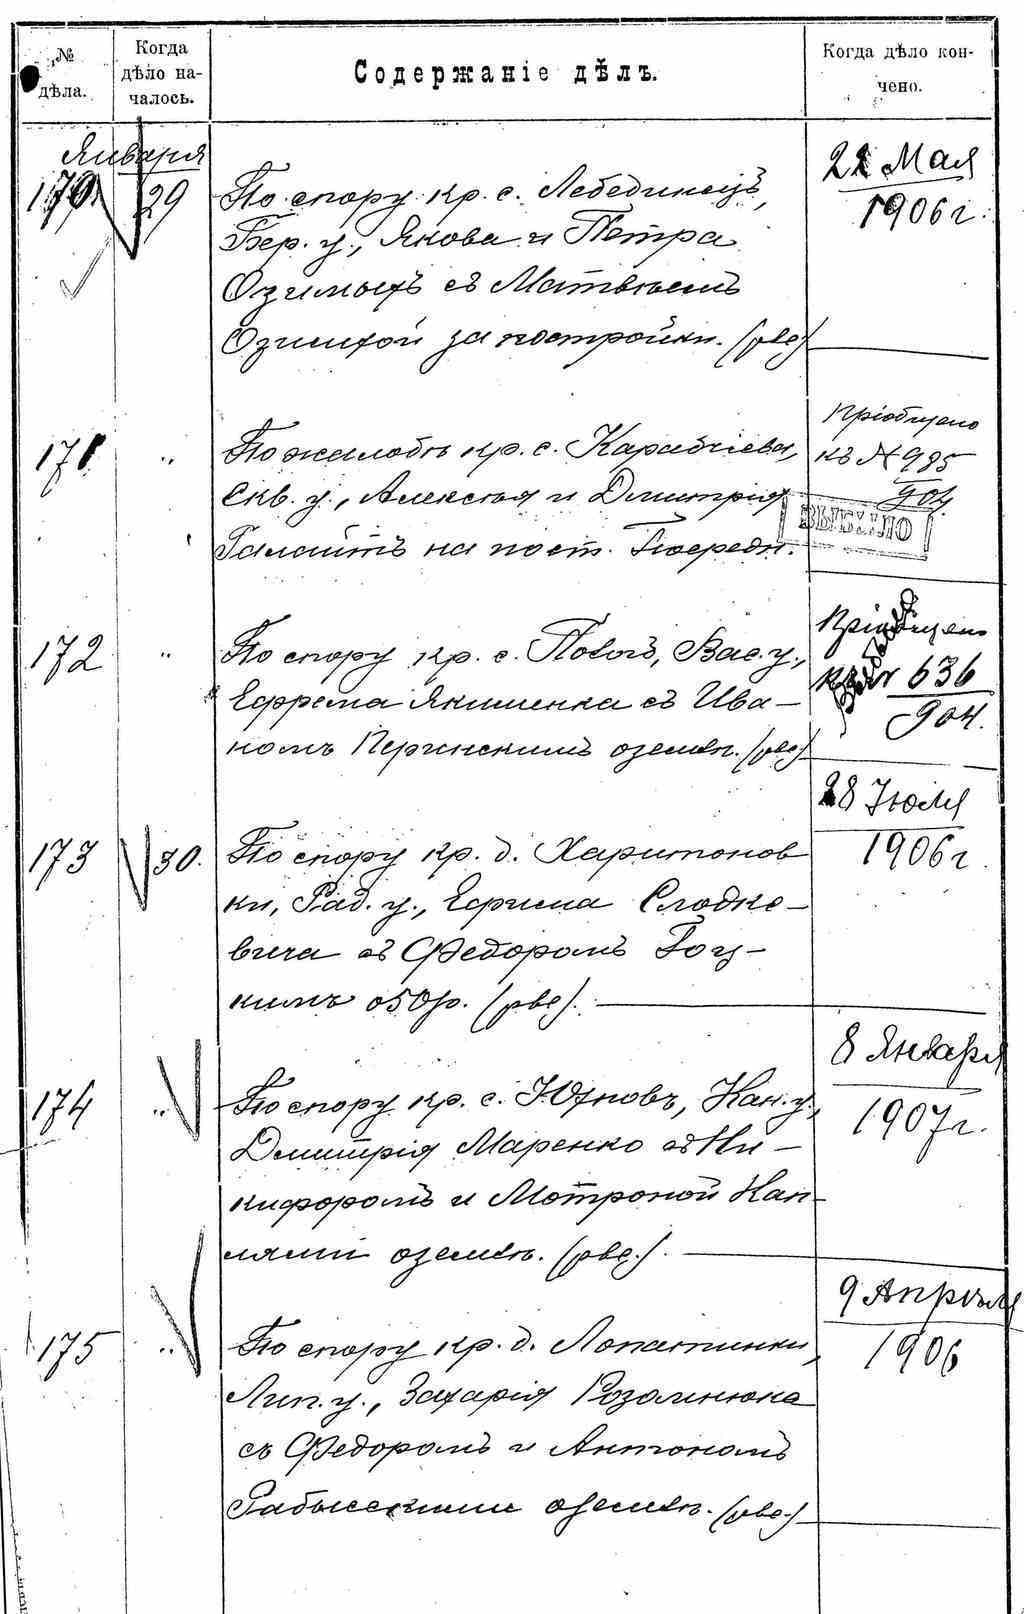 № дѣла.
Когда дѣло на-
чалось.
Содержаніе дѣлъ.
Когда дѣло кон-
чено.
Января
170 29 По спору кр. с. Лебединецъ,
Бер. у., Якова и Петра
Озимыхъ съ Матвѣемъ
Озимой за постройки. (рве)
22 Мая
1906 г.
171 " По жалобѣ кр. с. Карабчіева,
Скв. у., Алексѣя и Дмитрія
на пост. Посредн.
Пріобщено
къ № 985
904
ВЫБЫЛО
172 " По спору кр. с. Вас. у.,
Ефрема Якименка съ Ива-
номъ Перинскимъ о землѣ. (рве)
Пріобщено
к № 636
904.
173 30. По спору кр. д. Харитонов
ки, Рад. у., Ефима Слодке-
вича съ Федоромъ Гоц-
кимъ о 50 р. (рве).
28 Іюля
1906 г
174 " По спору кр. с. Кан. у.,
Дмитрія Маренко съ Ни-
кифоромъ и Мотроной Кап-
лями о землѣ. (рве.).
8 Января
1907 г.
175 " По спору кр. д. Лопатинки,
Лип. у., Захарія
съ Федоромъ и Антономъ
о землѣ. (рве.)
9 Апрѣля
1906